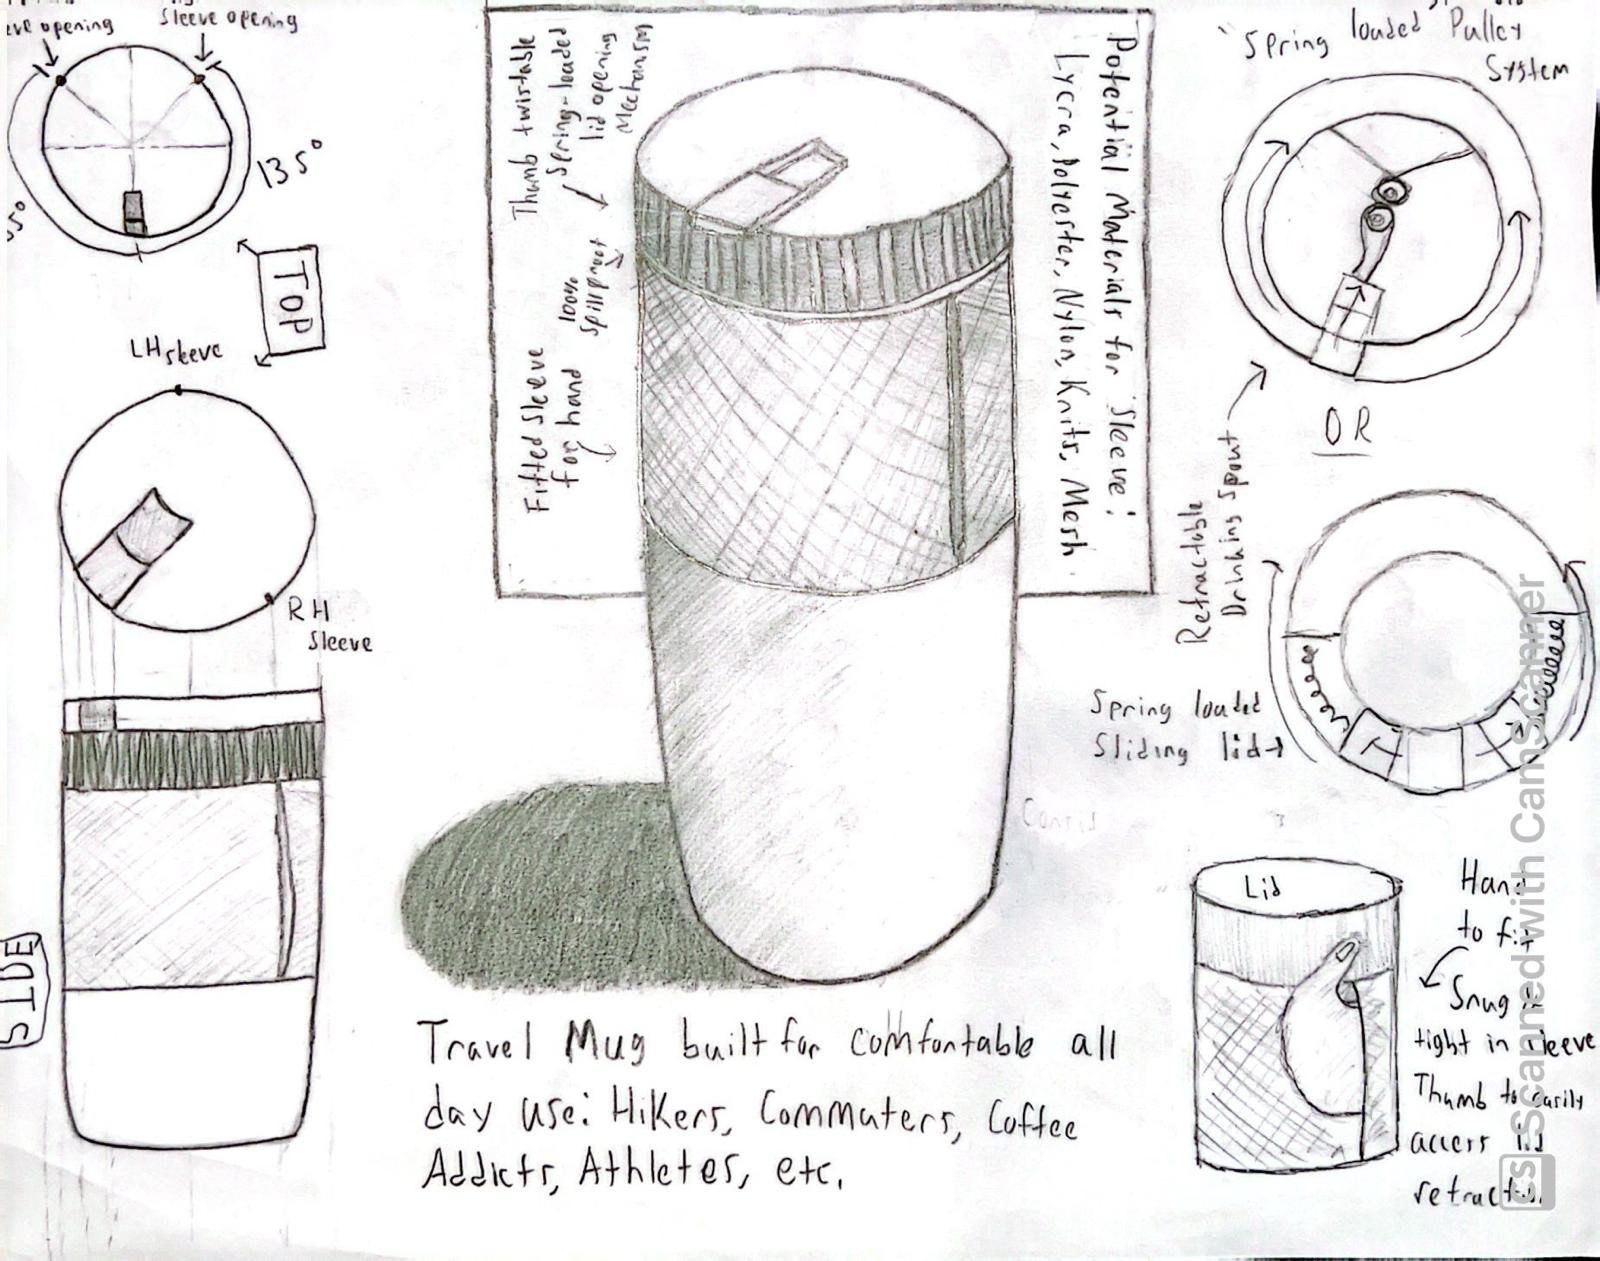 Sleeve opening
opening
135°
TOP
LH sleeve
RH
Sleeve
SIDE
Thumb twistable
Spring-loaded
lid opening
Mechanism
100%
Spillproof
Fitted Sleeve
for hand
Potential Materials for Sleeve:
Lycra, Polyester, Nylon, Knits, Mesh
Travel Mug built for comfortable all
day use: Hikers, Commuters, Coffee
Addicts, Athletes, etc.
Spring loaded Pulley
System
OR
Retractable
Drinking Spout
Spring loaded
Sliding lid
Lid
Hand
to fit
Snug
tight in sleeve
Thumb to easily
access lid
CS Scanned with CamScanner